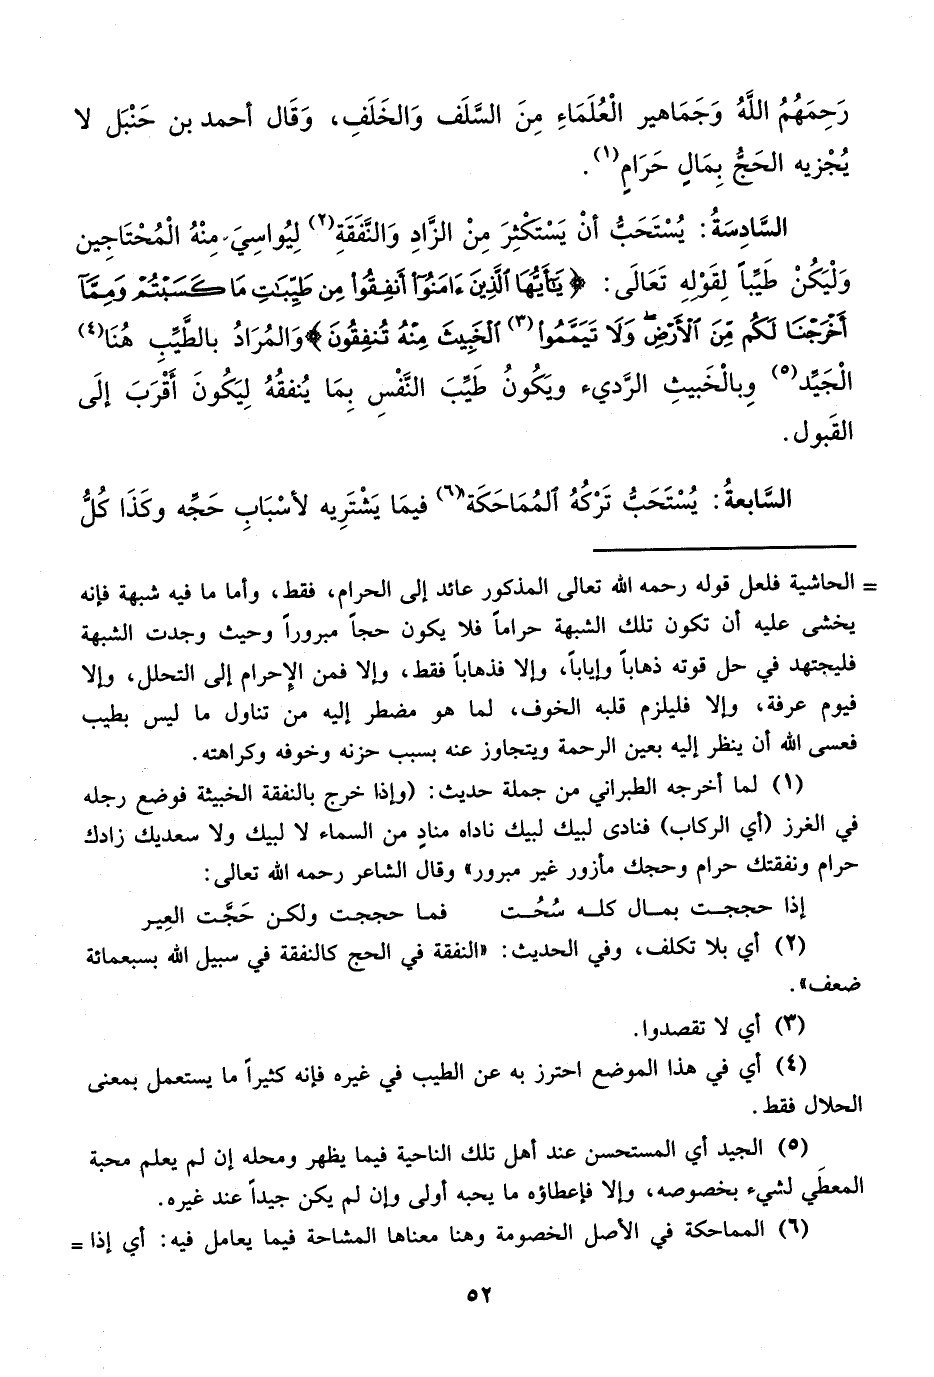 رَحِمَهُمُ اللَّهُ وَجَمَاهير الْعُلَمَاءِ مِنَ السَّلَف وَالخَلَفِ، وَقَال أحمد بن حَنْبَل لا
يُجْزيه الحَجُّ بِمَالٍ حَرَامٍ(١).
السَّادِسَةُ: يُسْتَحَبُّ أنْ يَسْتَكْثِرَ مِنْ الزَّادِ وَالنَّفَقَةِ(٢) لِيُواسِيَ مِنْهُ الْمُحْتَاجِين
وَلْيَكُنْ طَيِّباً لِقَوْلِهِ تَعَالَى: ﴿يَٰٓأَيُّهَا ٱلَّذِينَ ءَامَنُوٓا۟ أَنفِقُوا۟ مِن طَيِّبَٰتِ مَا كَسَبْتُمْ وَمِمَّآ
أَخْرَجْنَا لَكُم مِّنَ ٱلْأَرْضِ ۖ وَلَا تَيَمَّمُوا۟(٣) ٱلْخَبِيثَ مِنْهُ تُنفِقُونَ﴾ وَالمُرَادُ بالطَّيِّبِ هُنَا(٤)
الْجَيِّد(٥) وبِالْخَبيثِ الرَّديء ويَكُونُ طَيِّبَ النَّفْسِ بِمَا يُنفقُهُ لِيَكُونَ أَقْرَبَ إلَى
القَبول.
السَّابعةُ: يُسْتَحَبُّ تَرْكُهُ المُمَاحَكَة(٦) فيمَا يَشْتَرِيه لأسْبَابِ حَجِّه وكَذَا كُلُّ
= الحاشية فلعل قوله رحمه الله تعالى المذكور عائد إلى الحرام، فقط، وأما ما فيه شبهة فإنه
يخشى عليه أن تكون تلك الشبهة حراماً فلا يكون حجاً مبروراً وحيث وجدت الشبهة
فليجتهد في حل قوته ذهاباً وإياباً، وإلا فذهاباً فقط، وإلا فمن الإحرام إلى التحلل، وإلا
فيوم عرفة، وإلا فليلزم قلبه الخوف، لما هو مضطر إليه من تناول ما ليس بطيب
فعسى الله أن ينظر إليه بعين الرحمة ويتجاوز عنه بسبب حزنه وخوفه وكراهته.
(١) لما أخرجه الطبراني من جملة حديث: (وإذا خرج بالنفقة الخبيثة فوضع رجله
في الغرز (أي الركاب) فنادى لبيك لبيك ناداه منادٍ من السماء لا لبيك ولا سعديك زادك
حرام ونفقتك حرام وحجك مأزور غير مبرور» وقال الشاعر رحمه الله تعالى:
إذا حججـت بمـال كلـه سُحُـت فمـا حججـت ولكـن حَجَّـت العِيـر
(٢) أي بلا تكلف، وفي الحديث: «النفقة في الحج كالنفقة في سبيل الله بسبعمائة
ضعف».
(٣) أي لا تقصدوا.
(٤) أي في هذا الموضع احترز به عن الطيب في غيره فإنه كثيراً ما يستعمل بمعنى
الحلال فقط.
(٥) الجيد أي المستحسن عند أهل تلك الناحية فيما يظهر ومحله إن لم يعلم محبة
المعطَي لشيء بخصوصه، وإلا فإعطاؤه ما يحبه أولى وإن لم يكن جيداً عند غيره.
(٦) المماحكة في الأصل الخصومة وهنا معناها المشاحة فيما يعامل فيه: أي إذا =
٥٢